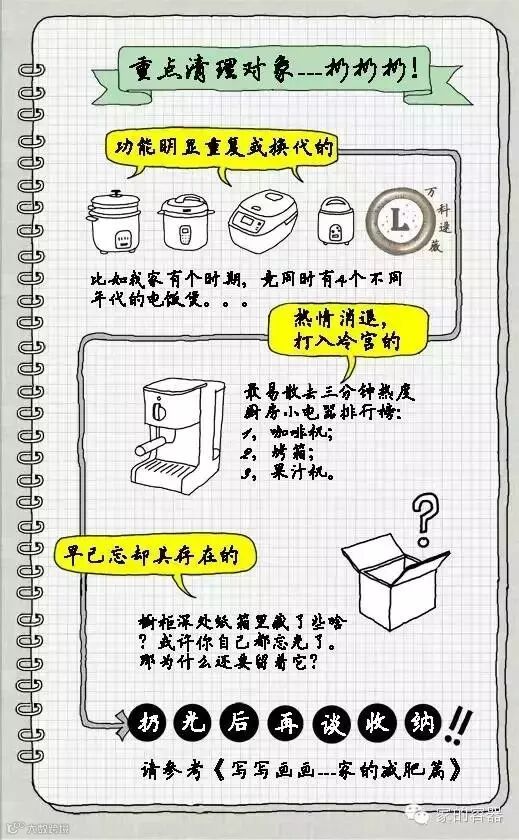 重点清理对象---扔扔扔!
功能明显重复或换代的
万科速薇
L
比如我家有个时期，竟同时有4个不同
年代的电饭煲。。。
热情消退，
打入冷宫的
最易散去三分钟热度
厨房小电器排行榜：
1，咖啡机；
2，烤箱；
3，果汁机。
?
早已忘却其存在的
橱柜深处纸箱里藏了些啥
？或许你自己都忘光了。
那为什么还要留着它？
扔光后再谈收纳!!
请参考《写写画画---家的减肥篇》
家的容器